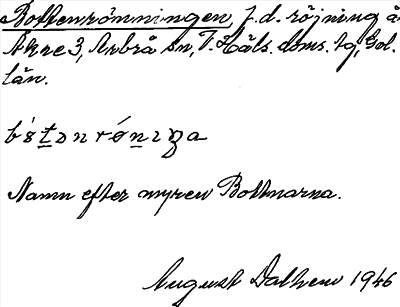 Bottenrömningen, f.d. röjning å
Åkre 3, Arbrå sn, V. Häls. doms. tg, Gvl.
län.
Namn efter myren Bottnarna.
August Dalhem 1946